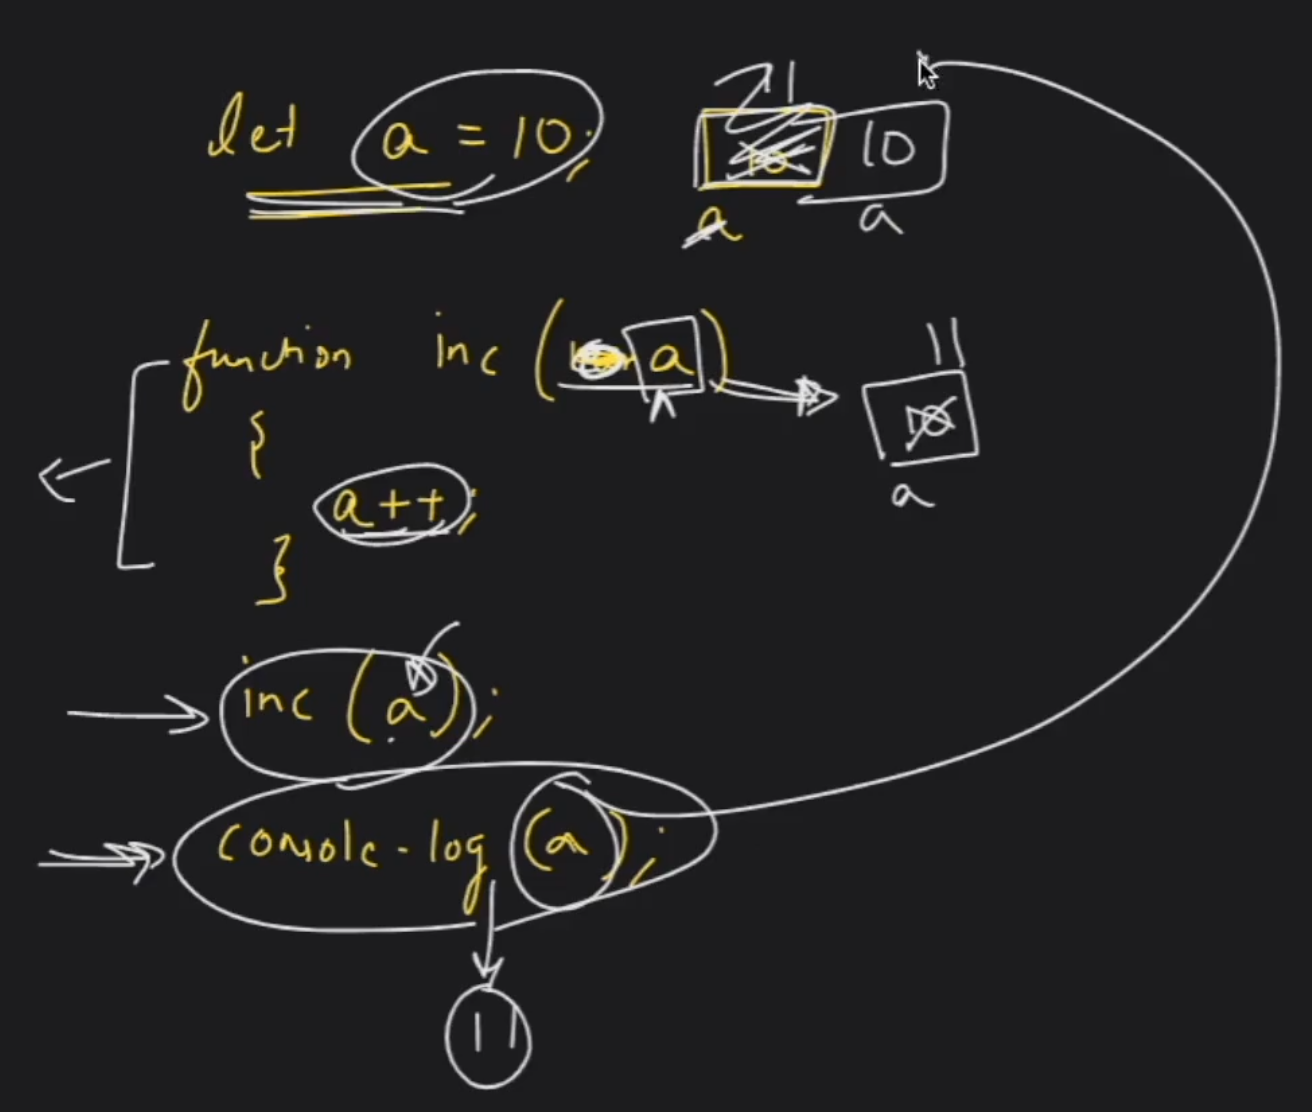 let a = 10;
11
10 10
a a
function inc ( a )
11
10
{
a
a++;
}
inc (a);
console.log (a);
11